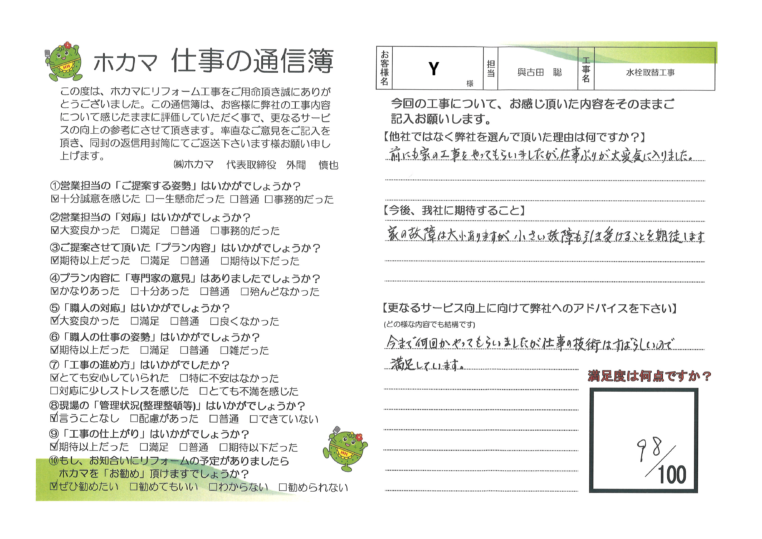 ホカマ 仕事の通信簿
この度は、ホカマにリフォーム工事をご用命頂き誠にありが
とうございました。この通信簿は、お客様に弊社の工事内容
について感じたままに評価していただく事で、更なるサービ
スの向上の参考にさせて頂きます。率直なご意見をご記入を
頂き、同封の返信用封筒にてご返送下さいます様お願い申し
上げます。
㈱ホカマ 代表取締役 外間 慎也
①営業担当の「ご提案する姿勢」はいかがでしょうか?
☑十分誠意を感じた □一生懸命だった □普通 □事務的だった
②営業担当の「対応」はいかがでしょうか?
☑大変良かった □満足 □普通 □事務的だった
③ご提案させて頂いた「プラン内容」はいかがでしょうか?
☑期待以上だった □満足 □普通 □期待以下だった
④プラン内容に「専門家の意見」はありましたでしょうか?
☑かなりあった □十分あった □普通 □殆んどなかった
⑤「職人の対応」はいかがでしょうか?
☑大変良かった □満足 □普通 □良くなかった
⑥「職人の仕事の姿勢」はいかがでしょうか?
☑期待以上だった □満足 □普通 □雑だった
⑦「工事の進め方」はいかがでしたか?
☑とても安心していられた □特に不安はなかった
□対応に少しストレスを感じた □とても不満を感じた
⑧現場の「管理状況(整理整頓等)」はいかがでしょうか?
☑言うことなし □配慮があった □普通 □できていない
⑨「工事の仕上がり」はいかがでしょうか?
☑期待以上だった □満足 □普通 □期待以下だった
⑩もし、お知合いにリフォームの予定がありましたら
ホカマを「お勧め」頂けますでしょうか?
☑ぜひ勧めたい □勧めてもいい □わからない □勧められない
お客様名 Y 様 担当 與古田 聡 工事名 水栓取替工事
今回の工事について、お感じ頂いた内容をそのままご
記入お願いします。
【他社ではなく弊社を選んで頂いた理由は何ですか?】
前にも家の工事をやってもらいましたが仕事ぶりが大変気に入りました。
【今後、我社に期待すること】
家の故障は大小ありますが、小さい故障も引き受けることを期待します
【更なるサービス向上に向けて弊社へのアドバイスを下さい】
(どの様な内容でも結構です)
今まで何回かやってもらいましたが仕事の技術はすばらしいので
満足しています。
満足度は何点ですか?
98/100